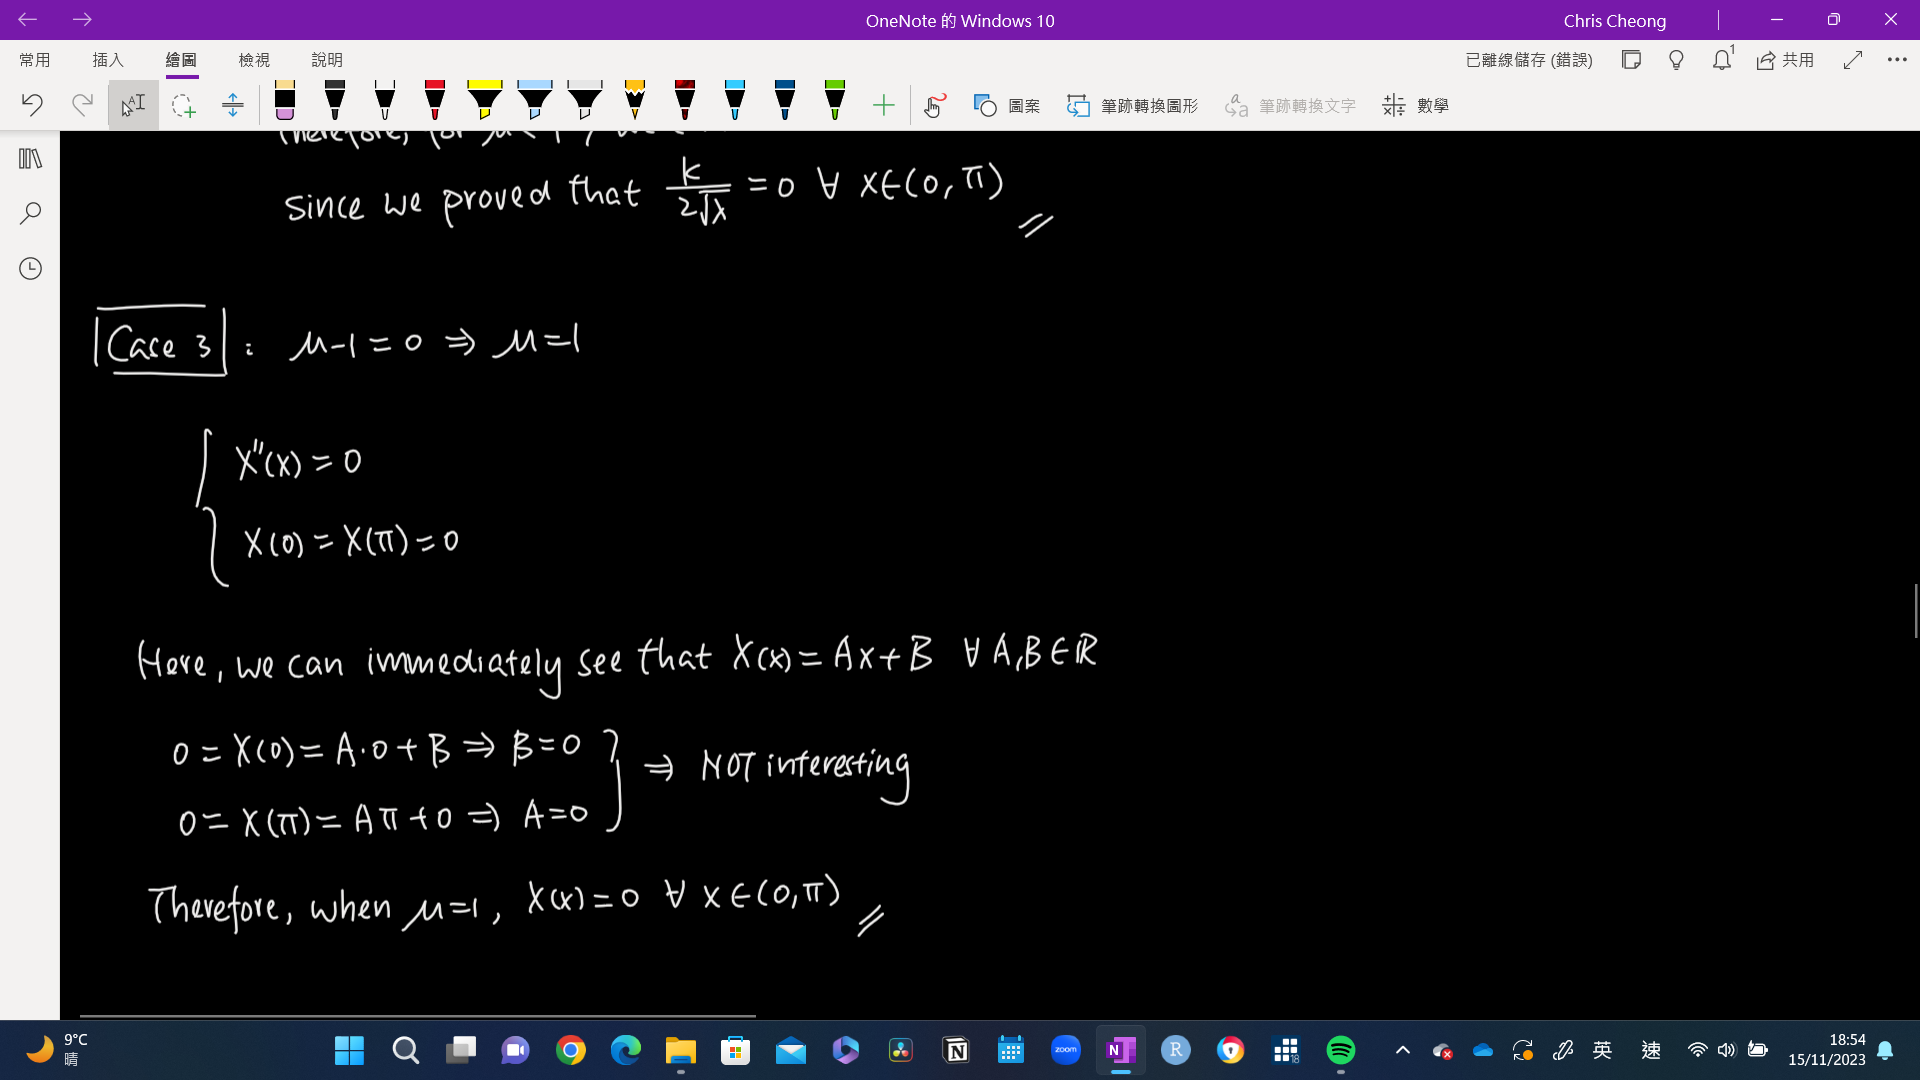 OneNote 的 Windows 10
Chris Cheong
常用 插入 繪圖 檢視 說明
已離線儲存 (錯誤) 1 共用
圖案 筆跡轉換圖形 筆跡轉換文字 數學
Therefore, for μ < 1,
since we proved that k/(2√x) = 0 ∀ x∈(0, π)
Case 3 : μ-1 = 0 ⇒ μ=1
X''(x) = 0
X(0) = X(π) = 0
Here, we can immediately see that X(x) = Ax+B ∀ A,B ∈ ℝ
0 = X(0) = A·0 + B ⇒ B = 0
⇒ NOT interesting
0 = X(π) = Aπ + 0 ⇒ A=0
Therefore, when μ=1, X(x) = 0 ∀ x ∈ (0,π)
9°C
晴
zoom
N
R
18
英
速
18:54
15/11/2023